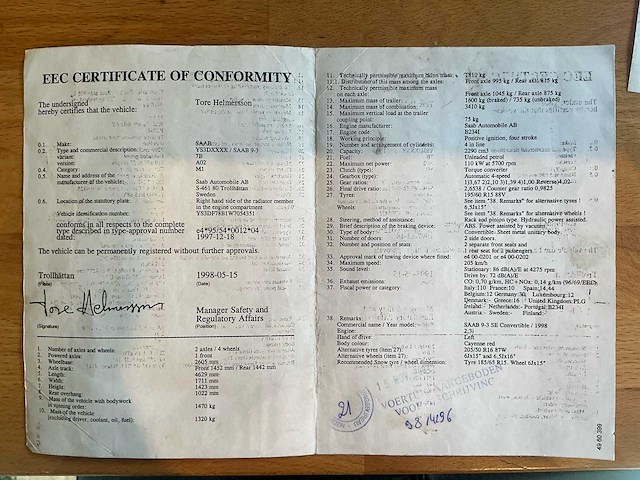 EEC CERTIFICATE OF CONFORMITY
The undersigned Tore Helmersson
hereby certifies that the vehicle:
0.1. Make: SAAB
0.2. Type and commercial description: YS3DXXXX / SAAB 9-3
variant: 7B
version: A02
0.4. Category: M1
0.5. Name and address of the
manufacturer of the vehicle: Saab Automobile AB
S-461 80 Trollhättan
Sweden
0.6. Location of the statutory plate: Right hand side of the radiator member
in the engine compartment
Vehicle identification number:
conforms in all respects to the complete
type described in type-approval number e4*95/54*0012*04
dated: 1997-12-18
The vehicle can be permanently registered without further approvals.
Trollhättan 1998-05-15
(Place) (Date)
Tore Helmersson Manager Safety and
Regulatory Affairs
(Signature) (Position)
1. Number of axles and wheels: 2 axles / 4 wheels
2. Powered axles: 1 front
3. Wheelbase: 2605 mm
4. Axle track: Front 1452 mm / Rear 1442 mm
5. Length: 4629 mm
6. Width: 1711 mm
7. Height: 1423 mm
8. Rear overhang: 1022 mm
9. Mass of the vehicle with bodywork
in running order: 1470 kg
10. Mass of the vehicle
(excluding driver, coolant, oil, fuel): 1320 kg
11. Technically permissible maximum laden mass: 1810 kg
11.1. Distribution of this mass among the axles: Front axle 995 kg / Rear axle 815 kg
12. Technically permissible maximum mass
on each axle: Front axle 1045 kg / Rear axle 875 kg
13. Maximum mass of trailer: 1600 kg (braked) / 735 kg (unbraked)
14. Maximum mass of combination: 3410 kg
15. Maximum vertical load at the trailer
coupling point: 75 kg
16. Engine manufacturer: Saab Automobile AB
17. Engine code: B234I
18. Working principle: Positive ignition, four stroke
19. Number and arrangement of cylinders: 4 in line
20. Capacity: 2290 cm3
21. Fuel: Unleaded petrol
22. Maximum net power: 110 kW at 5700 rpm
23. Clutch (type): Torque converter
24. Gearbox (type): Automatic 4-speed
25. Gear ratios:
26. Final drive ratio: 2,6538 / Counter gear ratio 0,9825
27. Tyres: 195/60 R15 88V
See item "38. Remarks" for alternative tyres !
Wheels: 6,5Jx15"
See item "38. Remarks" for alternative wheels !
28. Steering, method of assistance: Rack and pinion type. Hydraulic power assisted.
29. Brief description of the braking device: ABS. Power assisted by vacuum.
30. Type of body: Convertible. Sheet metal unitary body.
31. Number of doors: 2 side doors
32. Number and position of seats: 2 separate front seats and
1 rear seat for 2 passengers
33. Approval mark of towing device where fitted: e4 00-0201 or e4 00-0202
34. Maximum speed: 205 km/h
35. Sound level: Stationary: 86 dB(A)/E at 4275 rpm
Drive by: 72 dB(A)/E
36. Exhaust emissions: CO: 0,70 g/km, HC+NOx: 0,14 g/km (96/69/EEC)
37. Fiscal power or category: Italy:110 France:10 Spain:14,44
Belgium:12 Germany:30 Luxembourg:12
Denmark:- Greece:16 United Kingdom:PLG
Ireland:- Netherlands:- Portugal:B234I
Austria:- Sweden:- Finland:-
38. Remarks:
Commercial name / Year model: SAAB 9-3 SE Convertible / 1998
Engine: 2,3i
Hand of drive: Left
Body colour: Cayenne red
Alternative tyres (item 27): 205/50 R16 87W
Alternative wheels (item 27): 6Jx15" and 6,5Jx16"
Recommended Snow tyre / wheel dimension: Tyre 185/65 R15. Wheel 6Jx15"
21
VOERTUIG AANGEBODEN
VOOR INSCHRIJVING
49 60 399